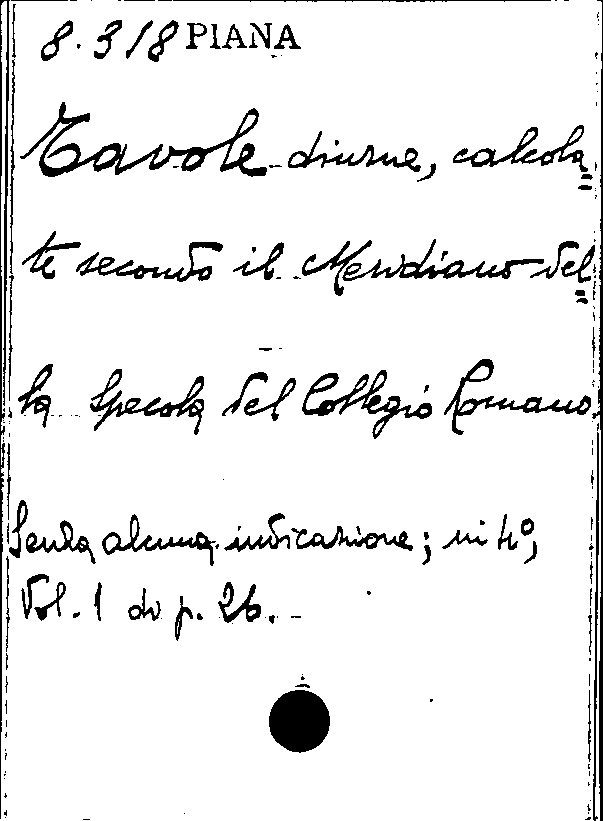 8.318 PIANA
Tavole diurne, calcola=
te secondo il Meridiano del=
la Specola del Collegio Romano
Senza alcuna indicazione; in 4°,
Vol. 1 di p. 26.